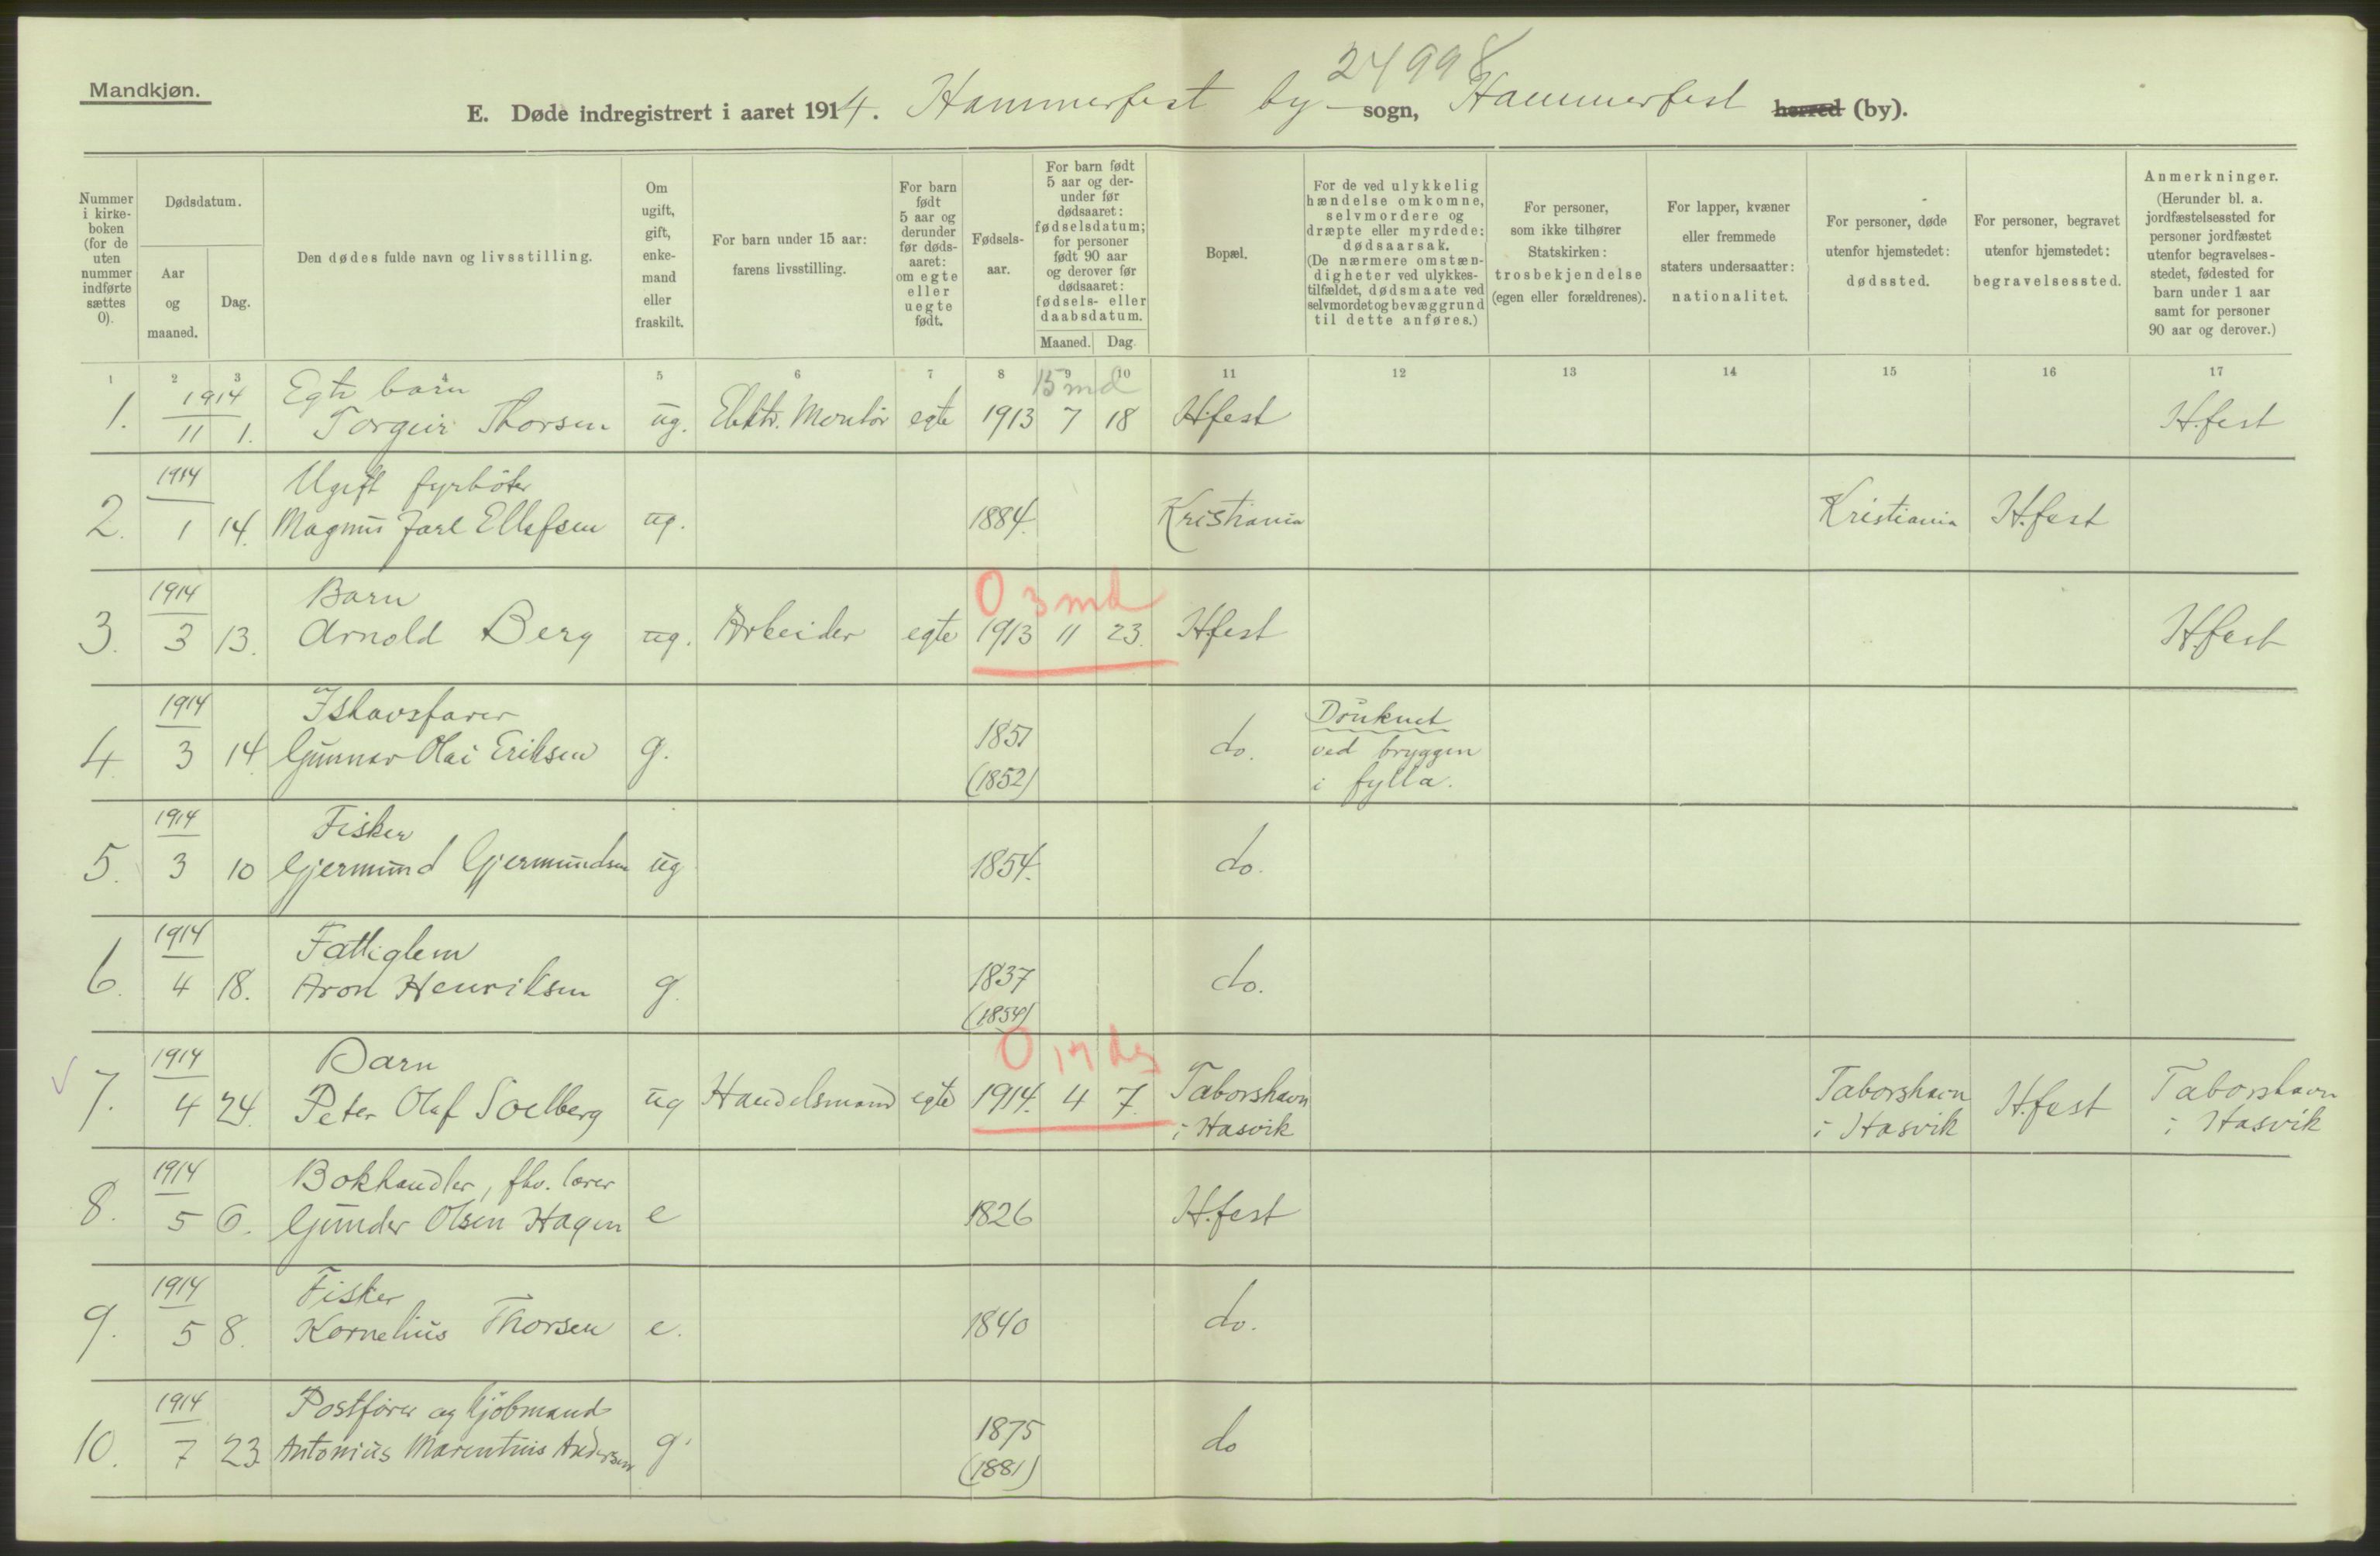 24998
Mandkjøn.
E. Døde indregistrert i aaret 1914. Hammerfest by sogn, Hammerfest herred (by).
Nummer i kirkeboken (for de uten nummer indførte sættes 0).
Dødsdatum.
Aar og maaned.
Dag.
Den dødes fulde navn og livsstilling.
Om ugift, gift, enkemand eller fraskilt.
For barn under 15 aar: farens livsstilling.
For barn født 5 aar og derunder før dødsaaret: om egte eller uegte født.
Fødselsaar.
For barn født 5 aar og derunder før dødsaaret: fødselsdatum; for personer født 90 aar og derover før dødsaaret: fødsels- eller daabsdatum.
Maaned. Dag.
Bopæl.
For de ved ulykkelig hændelse omkomne, selvmordere og dræpte eller myrdede: dødsaarsak. (De nærmere omstændigheter ved ulykkestilfældet, dødsmaate ved selvmordet og bevæggrund til dette anføres.)
For personer, som ikke tilhører Statskirken: trosbekjendelse (egen eller forældrenes).
For lapper, kvæner eller fremmede staters undersaatter: nationalitet.
For personer, døde utenfor hjemstedet: dødssted.
For personer, begravet utenfor hjemstedet: begravelsessted.
Anmerkninger. (Herunder bl. a. jordfæstelsessted for personer jordfæstet utenfor begravelsesstedet, fødested for barn under 1 aar samt for personer 90 aar og derover.)
1 2 3 4 5 6 7 8 9 10 11 12 13 14 15 16 17
1914 Egte barn 15 md
1. 11 1. Torgeir Thorsen ug. Elektr. Montør egte 1913 7 18 H.fest H.fest
1914 Ugift fyrbøter
2. 1 14. Magnus Jarl Ellefsen ug. 1884. Kristiania Kristiania H.fest
1914 Barn 0 3 md
3. 3 13. Arnold Berg ug. Arbeider egte 1913 11 23. H.fest H.fest
1914 Ishavsfarer Druknet
4. 3 14 Gunnar Olai Eriksen g. 1851 do. ved bryggen
(1852) i fylla.
1914 Fisker
5. 3 10 Gjermund Gjermundsen ug 1854. do.
1914 Fattiglem
6. 4 18. Aron Henriksen g. 1837 do.
(1854)
1914 Barn 0 17 dg
7. 4 24. Peter Olaf Soelberg ug Handelsmand egte 1914. 4 7. Taborshavn Taborshavn H.fest Taborshavn
i Hasvik i Hasvik i Hasvik
1914 Bokhandler, fhv. lærer
8. 5 6. Gunder Olsen Hagen e 1826 H.fest
1914 Fisker
9. 5 8. Kornelius Thorsen e. 1840 do.
1914 Postfører og Kjøbmand
10. 7 23. Antonius Marentius Andersen g. 1875 do
(1881)